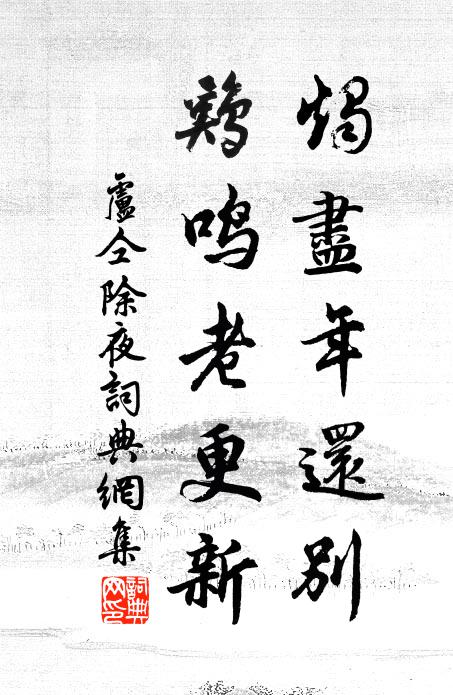 燭盡年還別
鷄鳴老更新
盧仝除夜詞典網集
詞典網印